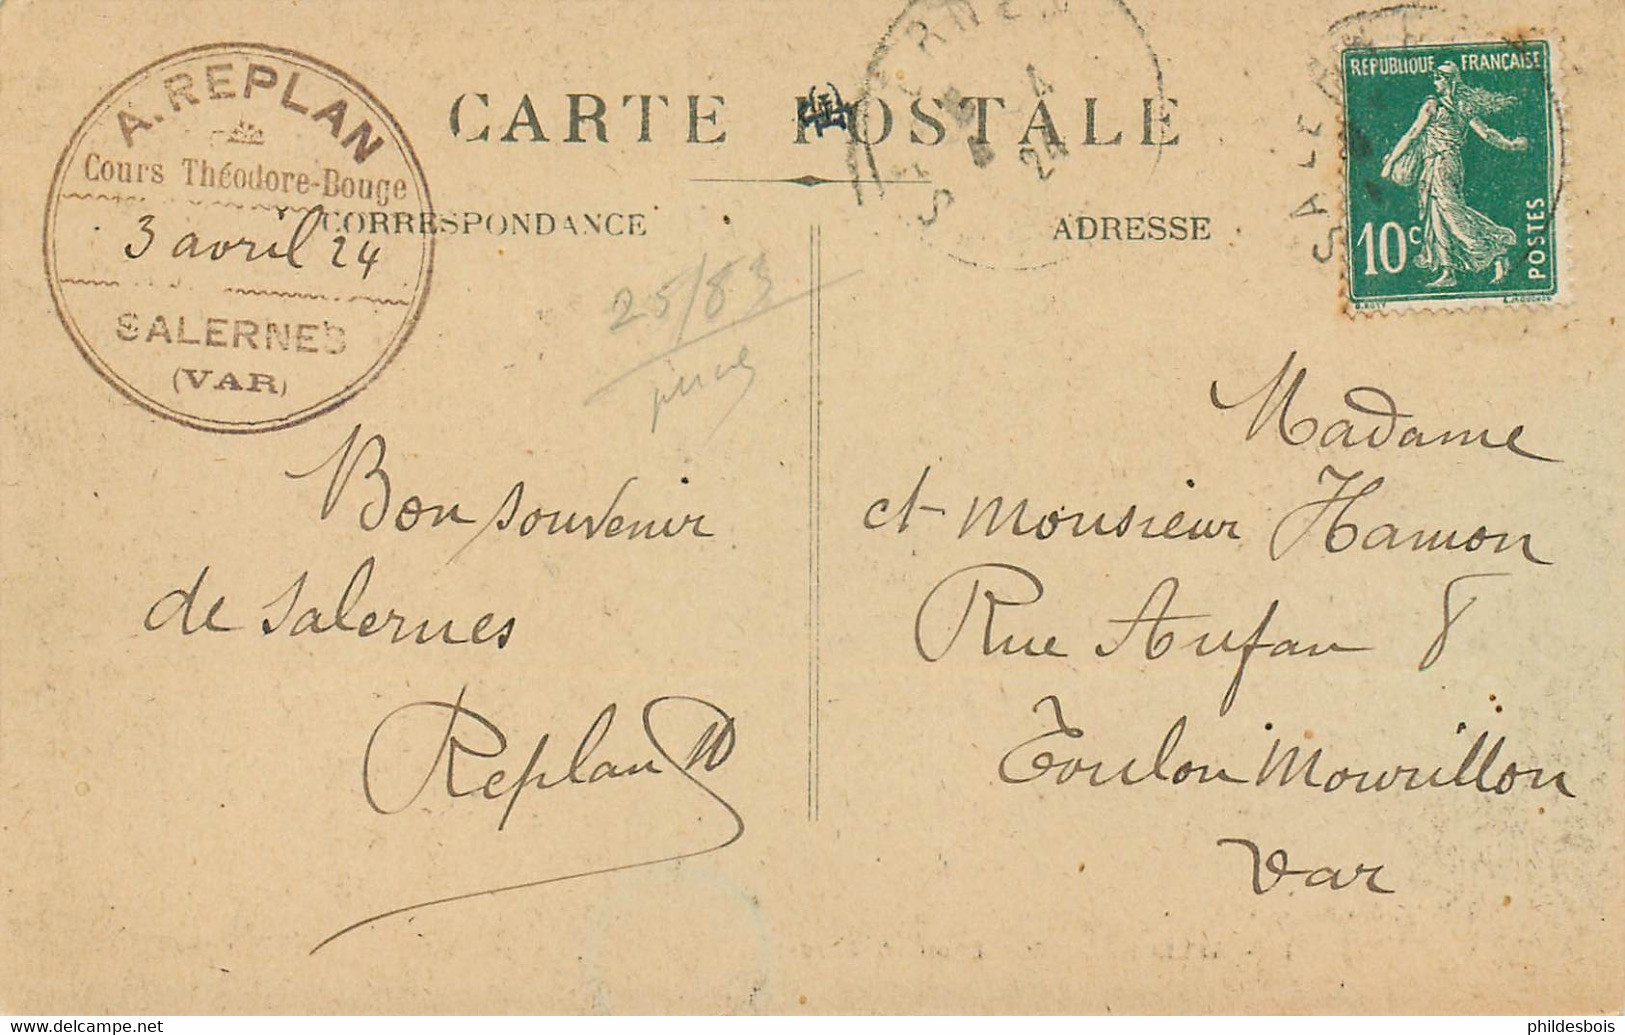 A. REPLAN
Cours Théodore-Bouge
3 avril 24
SALERNES
(VAR)
CARTE POSTALE
CORRESPONDANCE
ADRESSE
SALERNES
24
SALE
REPUBLIQUE FRANÇAISE
10c
POSTES
25/83
Bon souvenir
de Salernes
Replan
Madame
et Monsieur Hamon
Rue Aufan 8
Toulon Mourillon
Var
www.delcampe.net
phildesbois